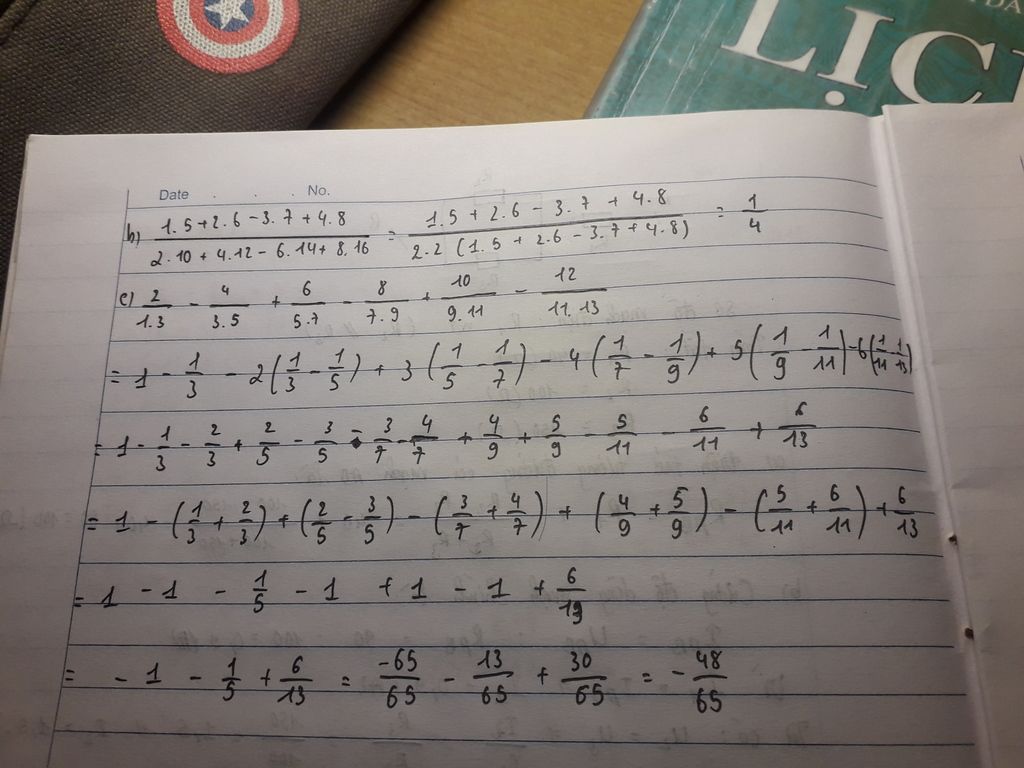 LỊC
Date . . . No.
b) \frac{1.5+2.6-3.7+4.8}{2.10+4.12-6.14+8.16} = \frac{1.5+2.6-3.7+4.8}{2.2(1.5+2.6-3.7+4.8)} = \frac{1}{4}
c) \frac{2}{1.3} - \frac{4}{3.5} + \frac{6}{5.7} - \frac{8}{7.9} + \frac{10}{9.11} - \frac{12}{11.13}
= 1 - \frac{1}{3} - 2(\frac{1}{3} - \frac{1}{5}) + 3(\frac{1}{5} - \frac{1}{7}) - 4(\frac{1}{7} - \frac{1}{9}) + 5(\frac{1}{9} - \frac{1}{11}) - 6(\frac{1}{11} - \frac{1}{13})
= 1 - \frac{1}{3} - \frac{2}{3} + \frac{2}{5} - \frac{3}{5} - \frac{3}{7} - \frac{4}{7} + \frac{4}{9} + \frac{5}{9} - \frac{5}{11} - \frac{6}{11} + \frac{6}{13}
= 1 - (\frac{1}{3} + \frac{2}{3}) + (\frac{2}{5} - \frac{3}{5}) - (\frac{3}{7} + \frac{4}{7}) + (\frac{4}{9} + \frac{5}{9}) - (\frac{5}{11} + \frac{6}{11}) + \frac{6}{13}
= 1 - 1 - \frac{1}{5} - 1 + 1 - 1 + \frac{6}{13}
= - 1 - \frac{1}{5} + \frac{6}{13} = \frac{-65}{65} - \frac{13}{65} + \frac{30}{65} = - \frac{48}{65}